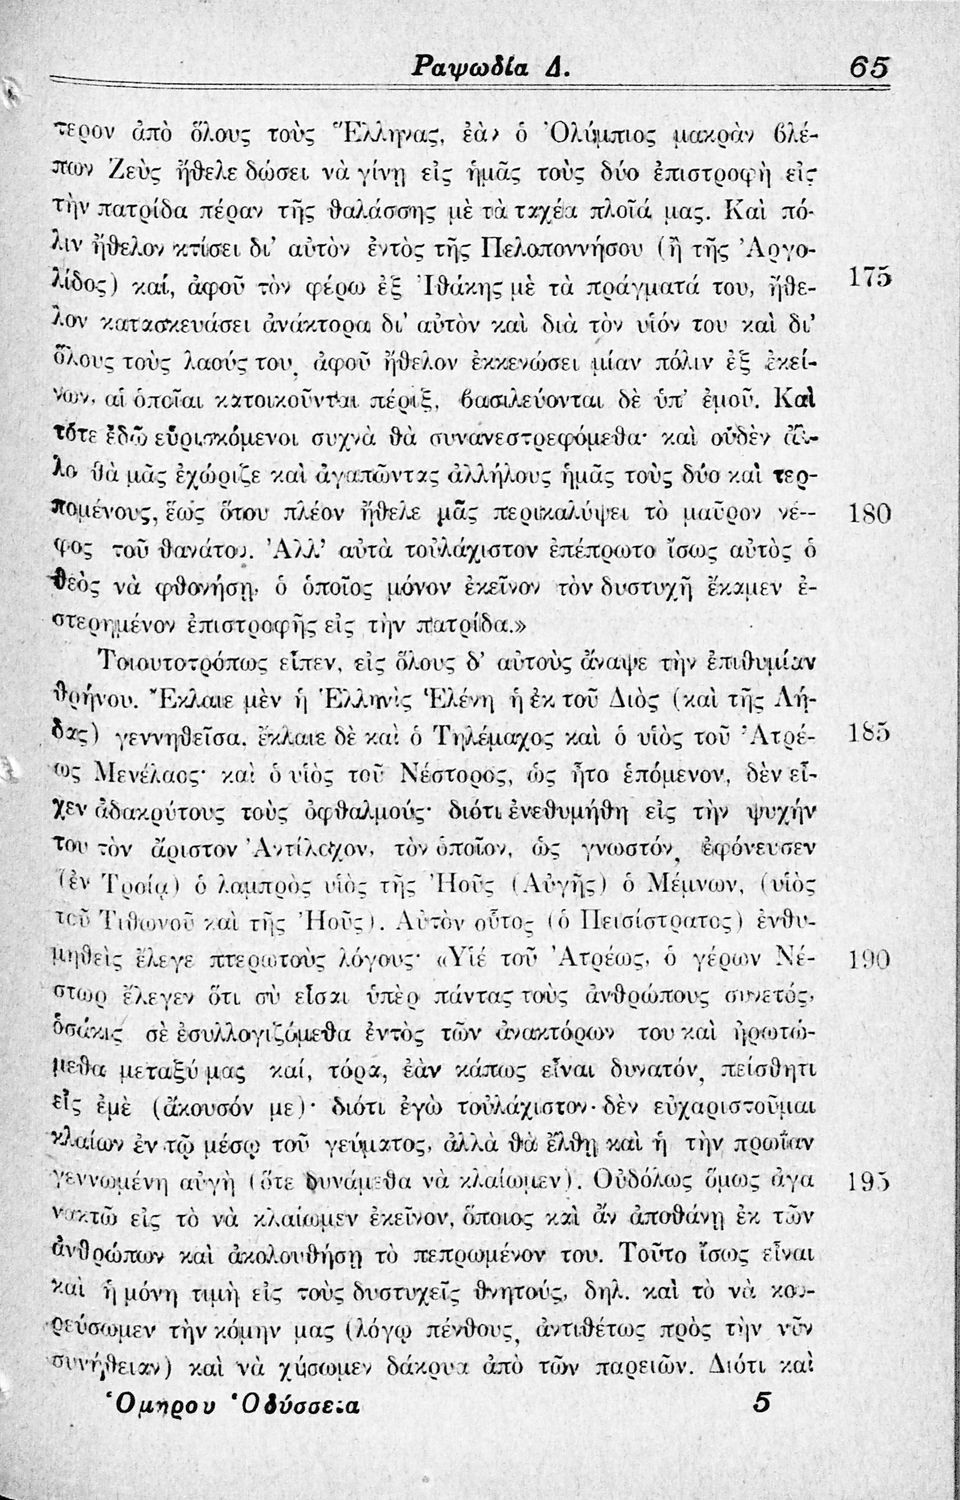 Ραψωδία Δ. 65
τερον ἀπὸ ὅλους τοὺς Ἕλληνας, ἐὰν ὁ Ὀλύμπιος μακρὰν βλέ-
πων Ζεὺς ἤθελε δώσει νὰ γίνῃ εἰς ἡμᾶς τοὺς δύο ἐπιστροφὴ εἰς
τὴν πατρίδα πέραν τῆς θαλάσσης μὲ τὰ ταχέα πλοῖά μας. Καὶ πό-
λιν ἤθελον κτίσει δι’ αὐτὸν ἐντὸς τῆς Πελοποννήσου (ἢ τῆς Ἀργο-
λίδος) καί, ἀφοῦ τὸν φέρω ἐξ Ἰθάκης μὲ τὰ πράγματά του, ἤθε- 175
λον κατασκευάσει ἀνάκτορα δι’ αὐτὸν καὶ διὰ τὸν υἱόν του καὶ δι’
ὅλους τοὺς λαούς του, ἀφοῦ ἤθελον ἐκκενώσει μίαν πόλιν ἐξ ἐκεί-
νων, αἱ ὁποῖαι κατοικοῦνται πέριξ, βασιλεύονται δὲ ὑπ’ ἐμοῦ. Καὶ
τότε ἐδῶ εὑρισκόμενοι συχνὰ θὰ συνανεστρεφόμεθα· καὶ οὐδὲν ἄλ-
λο θὰ μᾶς ἐχώριζε καὶ ἀγαπῶντας ἀλλήλους ἡμᾶς τοὺς δύο καὶ τερ-
πομένους, ἕως ὅτου πλέον ἤθελε μᾶς περικαλύψει τὸ μαῦρον νέ-- 180
φος τοῦ θανάτου. Ἀλλ’ αὐτὰ τοὐλάχιστον ἐπέπρωτο ἴσως αὐτὸς ὁ
θεὸς νὰ φθονήσῃ, ὁ ὁποῖος μόνον ἐκεῖνον τὸν δυστυχῆ ἔκαμεν ἐ-
στερημένον ἐπιστροφῆς εἰς τὴν πατρίδα.»
Τοιουτοτρόπως εἶπεν, εἰς ὅλους δ’ αὐτοὺς ἄναψε τὴν ἐπιθυμίαν
θρήνου. Ἔκλαιε μὲν ἡ Ἑλληνὶς Ἑλένη ἡ ἐκ τοῦ Διὸς (καὶ τῆς Λή-
δας) γεννηθεῖσα, ἔκλαιε δὲ καὶ ὁ Τηλέμαχος καὶ ὁ υἱὸς τοῦ Ἀτρέ- 185
ως Μενέλαος· καὶ ὁ υἱὸς τοῦ Νέστορος, ὡς ἦτο ἑπόμενον, δὲν εἶ-
χεν ἀδακρύτους τοὺς ὀφθαλμούς· διότι ἐνεθυμήθη εἰς τὴν ψυχήν
του τὸν ἄριστον Ἀντίλοχον, τὸν ὁποῖον, ὡς γνωστόν, ἐφόνευσεν
(ἐν Τροίᾳ) ὁ λαμπρὸς υἱὸς τῆς Ἠοῦς (Αὐγῆς) ὁ Μέμνων, (υἱὸς
τοῦ Τιθωνοῦ καὶ τῆς Ἠοῦς). Αὐτὸν οὗτος (ὁ Πεισίστρατος) ἐνθυ-
μηθεὶς ἔλεγε πτερωτοὺς λόγους· «Υἱέ τοῦ Ἀτρέως, ὁ γέρων Νέ- 190
στωρ ἔλεγεν ὅτι σὺ εἶσαι ὑπὲρ πάντας τοὺς ἀνθρώπους συνετός,
ὁσάκις σὲ ἐσυλλογιζόμεθα ἐντὸς τῶν ἀνακτόρων του καὶ ἠρωτώ-
μεθα μεταξύ μας καί, τόρα, ἐὰν κάπως εἶναι δυνατόν, πείσθητι
εἰς ἐμὲ (ἄκουσόν με)· διότι ἐγὼ τοὐλάχιστον δὲν εὐχαριστοῦμαι
κλαίων ἐν τῷ μέσῳ τοῦ γεύματος, ἀλλὰ θὰ ἔλθῃ καὶ ἡ τὴν πρωΐαν
γεννωμένη αὐγὴ (ὅτε δυνάμεθα νὰ κλαίωμεν). Οὐδόλως ὅμως ἀγα 195
νακτῶ εἰς τὸ νὰ κλαίωμεν ἐκεῖνον, ὅποιος καὶ ἂν ἀποθάνῃ ἐκ τῶν
ἀνθρώπων καὶ ἀκολουθήσῃ τὸ πεπρωμένον του. Τοῦτο ἴσως εἶναι
καὶ ἡ μόνη τιμὴ εἰς τοὺς δυστυχεῖς θνητούς, δηλ. καὶ τὸ νὰ κου-
ρεύσωμεν τὴν κόμην μας (λόγῳ πένθους, ἀντιθέτως πρὸς τὴν νῦν
συνήθειαν) καὶ νὰ χύσωμεν δάκρυα ἀπὸ τῶν παρειῶν. Διότι καὶ
Ὁμήρου Ὀδύσσεια 5